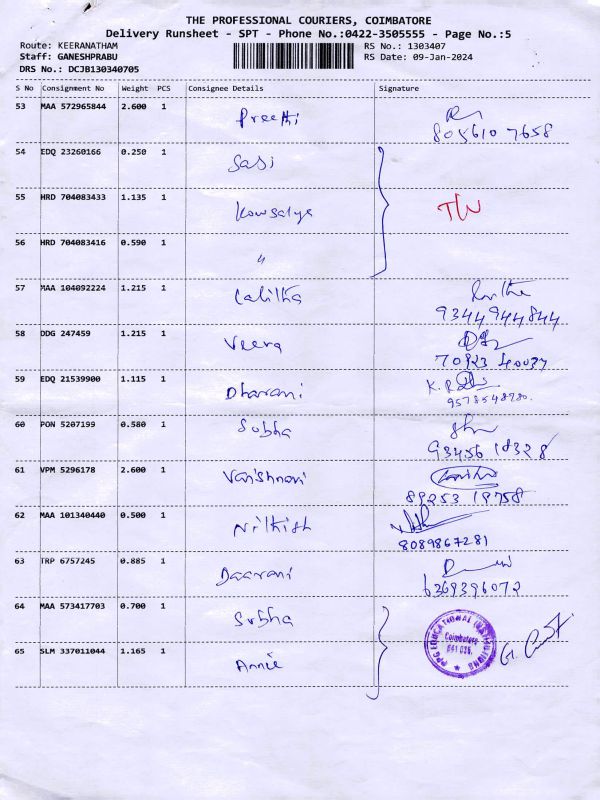 THE PROFESSIONAL COURIERS, COIMBATORE
Delivery Runsheet - SPT - Phone No.:0422-3505555 - Page No.:5
Route: KEERANATHAM RS No.: 1303407
Staff: GANESHPRABU RS Date: 09-Jan-2024
DRS No.: DCJB130340705
S No Consignment No Weight PCS Consignee Details Signature
53 MAA 572965844 2.600 1 Preethi
805610 7658
54 EDQ 23260166 0.250 1 Sasi
55 HRD 704083433 1.135 1 Kowsalya
56 HRD 704083416 0.590 1 "
57 MAA 104092224 1.215 1 Lalitha
9344944844
58 DDG 247459 1.215 1 Veera
70923 40037
59 EDQ 21539900 1.115 1 Dharani K.R
9578548780.
60 PON 5207199 0.580 1 Subha
93456 18328
61 VPM 5296178 2.600 1 Vaishnavi
89253 19758
62 MAA 101340440 0.500 1 Nithish
8089867281
63 TRP 6757245 0.885 1 Daarani
6369396072
64 MAA 573417703 0.700 1 Subha
PPG EDUCATIONAL INSTITUTIONS
Coimbatore
641 035.
65 SLM 337011044 1.165 1 Annie